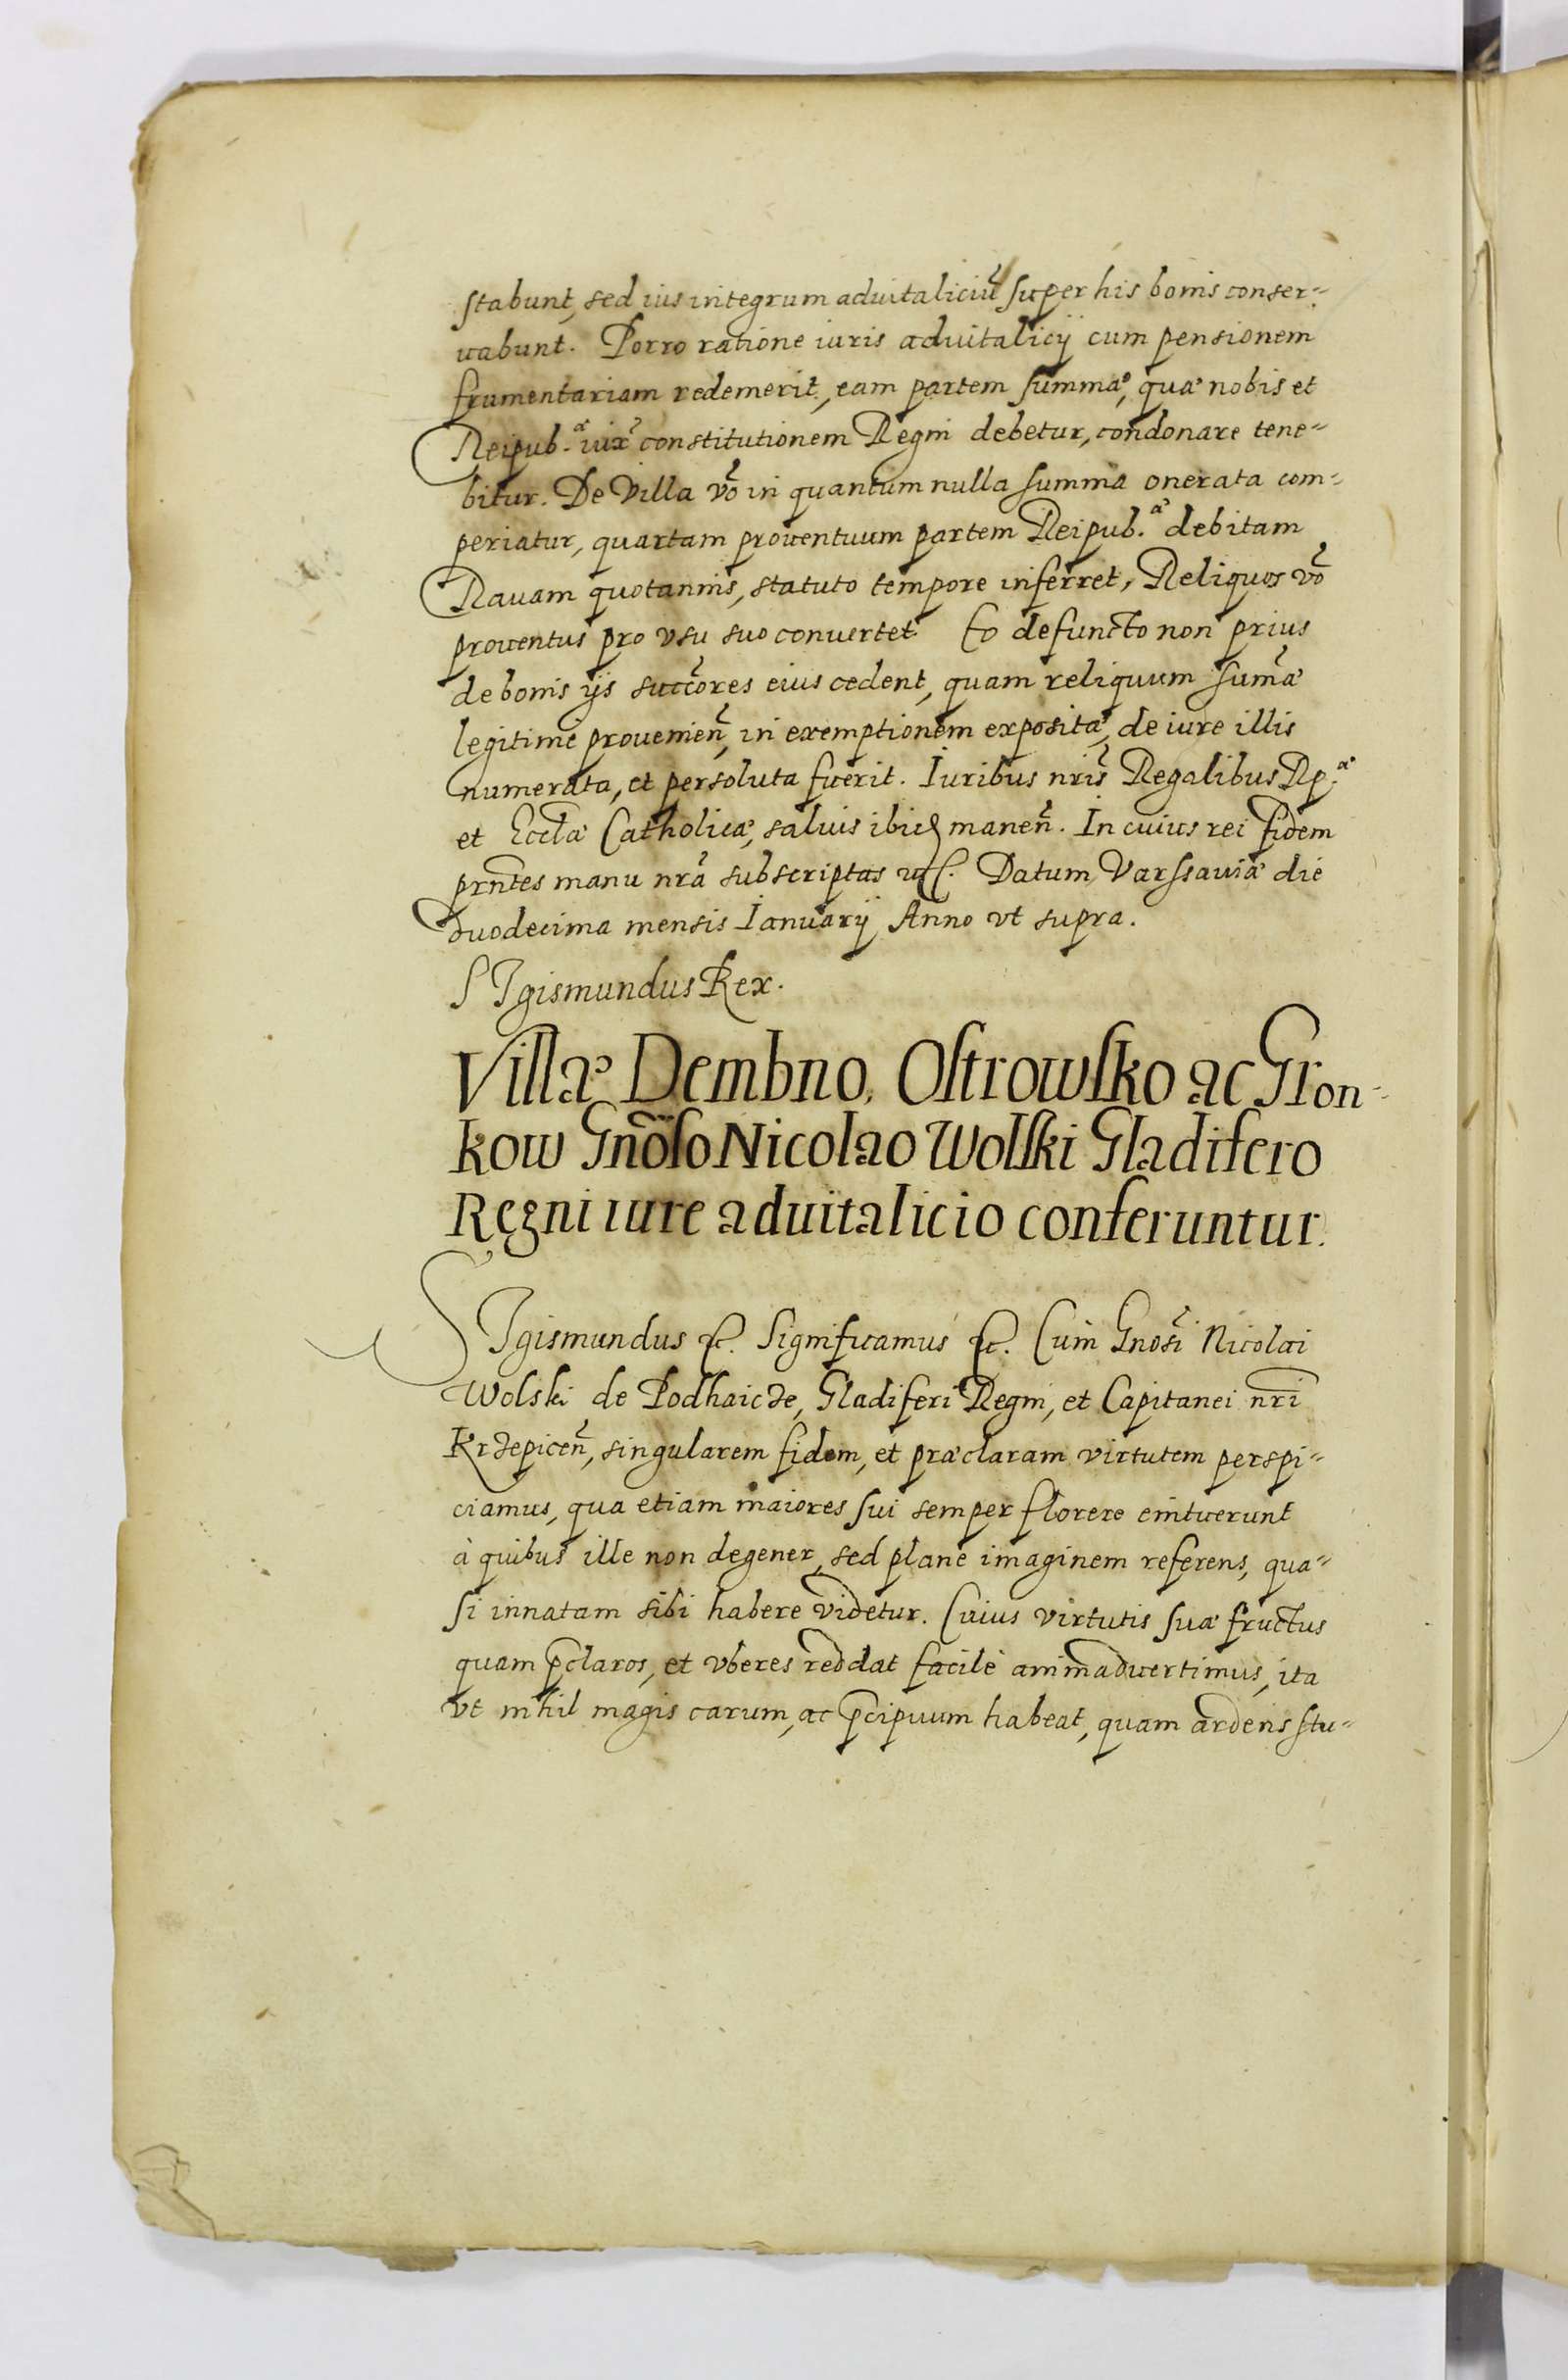 stabunt, sed ius integrum aduitaliciũ super his bonis conser-
uabunt. Porro ratione iuris aduitalicij cum pensionem
frumentariam redemerit, eam partem summæ, quæ nobis et
Reipub.æ iux̃ constitutionem Regni debetur, condonare tene-
bitur. De Villa võ in quantum nulla summa onerata com-
periatur, quartam prouentuum partem Reipub.æ debitam
Rauam quotannis, statuto tempore inferret, Reliquos võ
prouentus pro vsu suo conuertet. Eo defuncto non prius
de bonis ijs succõres eius cedent, quam reliquum sum̃æ
legitime prouenien̄, in exemptionem expositæ, de iure illis
numerata, et persoluta fuerit. Iuribus nris̃ Regalibus Rp.æ
et Eccłæ Catholicæ, saluis ibid manen̄. In cuius rei fidem
prn̄tes manu nrã subscriptas etc. Datum Varssauiæ die
duodecima mensis Ianuarij Anno vt supra.
SIgismundus Rex.
Villæ Dembno, Ostrowsko ac Gron-
kow Gnõso Nicolao Wolski Gladifero
Regni iure aduitalicio conferuntur.
SIgismundus etc. Significamus etc. Cum Gnosĩ Nicolai
Wolski de Podhaicze, Gladiferi Regni, et Capitanei nrĩ
Krzepicen̄, singularem fidem, et præclaram virtutem perspi-
ciamus, qua etiam maiores sui semper florere enituerunt
à quibus ille non degener, sed plane imaginem referens, qua-
si innatam sibi habere videtur. Cuius virtutis suæ fructus
quam p̄claros, et vberes reddat facilè animaduertimus, ita
vt nihil magis carum, ac p̄cipuum habeat, quam ardens stu-